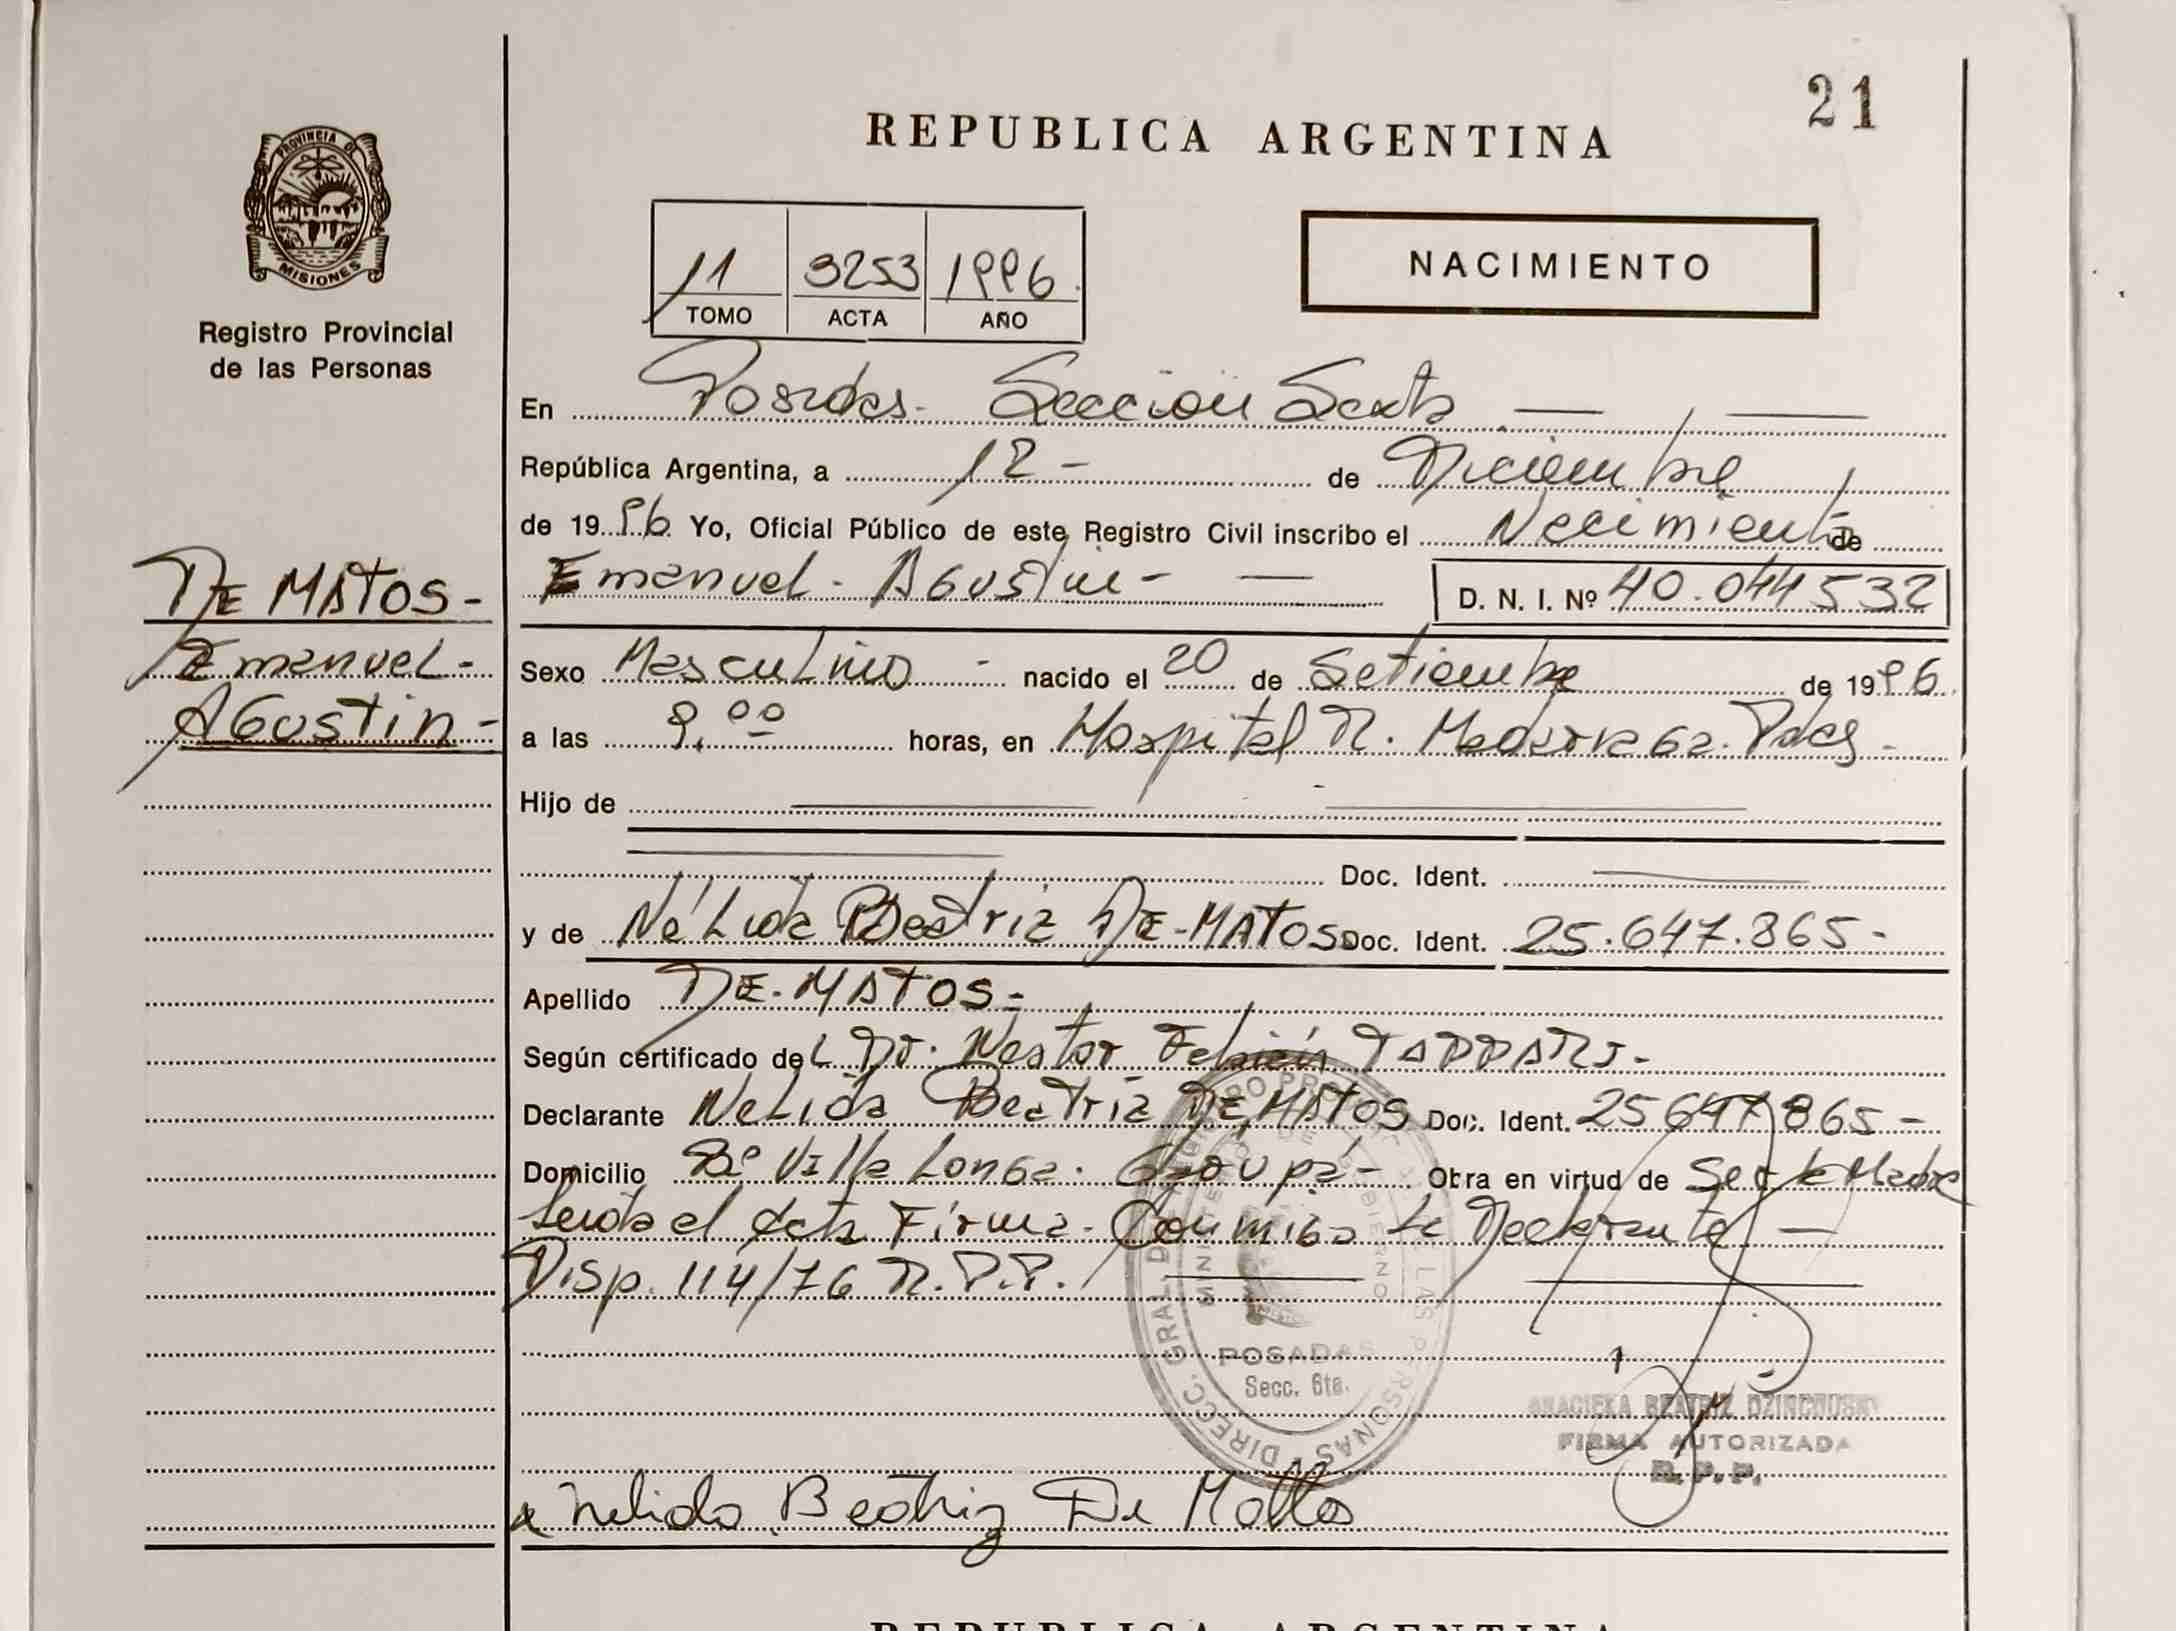 21
REPUBLICA ARGENTINA
PROVINCIA DE
MISIONES
Registro Provincial
de las Personas
11 3253 1996
TOMO ACTA AÑO
NACIMIENTO
En Posadas. Sección Sexta
República Argentina, a 12 - de Diciembre
de 1996 Yo, Oficial Público de este Registro Civil inscribo el Nacimiento de
Emanuel - Agustin - D. N. I. Nº 40.044532
DE MATOS -
Emanuel -
Agustin -
Sexo Masculino - nacido el 20 de Setiembre de 1996.
a las 9,00 horas, en Hospital R. Madariaga. Pdas -
Hijo de
Doc. Ident.
y de Nélida Beatriz DE-MATOS Doc. Ident. 25.647.865 -
Apellido DE-MATOS -
Según certificado del Dr. Nestor Fabián
Declarante Nelida Beatriz DE MATOS Doc. Ident. 25647865 -
Domicilio Bº Villa Longa. Garupá - Obra en virtud de Ser la Madre
Leida el Acta Firma Conmigo la Declarante
Disp. 114/76 R.P.P.
DIRECC. GRAL DE REGISTRO PROVINCIAL DE LAS PERSONAS
MINISTERIO DE GOBIERNO
POSADAS
Secc. 6ta.
BEATRIZ
FIRMA AUTORIZADA
R. P. P.
Nelida Beatriz De Mattos
REPUBLICA ARGENTINA